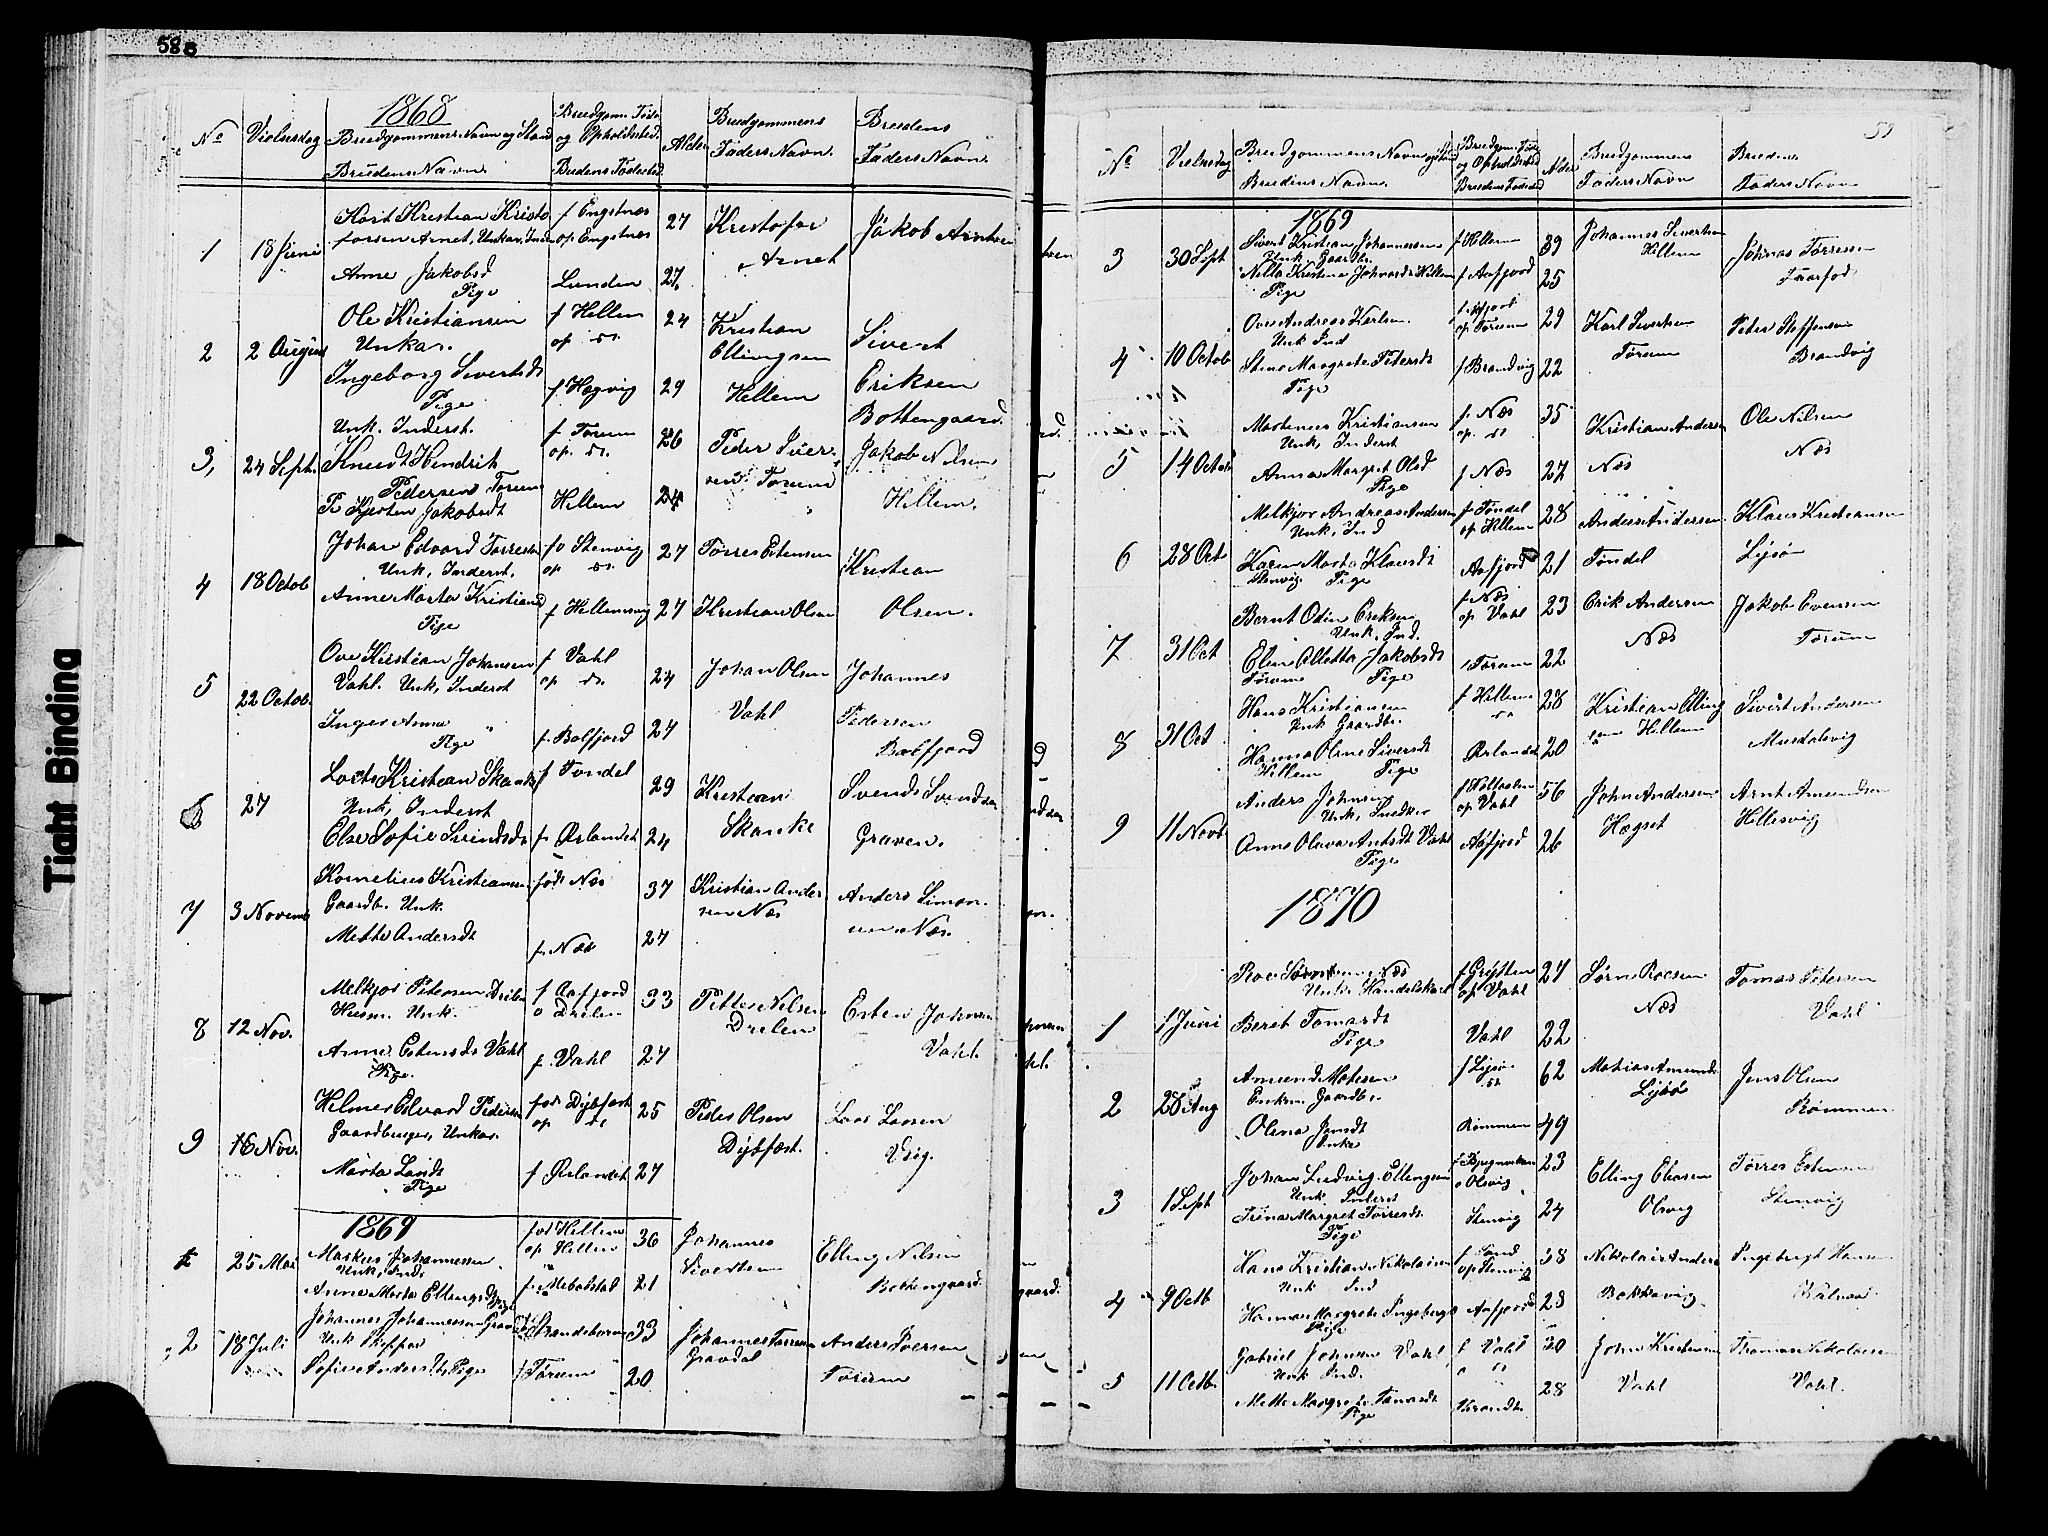 58 B
Tight Binding
1868
No
Vielsesdag
Brudgommens Navn og Stand
Brudens Navn
Brudgom. Føde
og Opholdsted.
Brudens Fødested
Alder
Brudgommens
Faders Navn.
Brudens
Faders Navn.
1
18 Juni
Kristian Kristo
forsen Arnet, Unkar, Ind
Anne Jakobsd
Pige
f Engstnæs
op Engstnæs
Lunden
27
27
Kristofer
Arnet
Jakob
2
2 August
Ole Kristiansen
Unkar.
Ingeborg Sivertsdt
Pige
f Hellem
op do
f. Hegvig
24
29
Kristian
Ellingsen
Hellem
Sivert
Eriksen
Bottengaard
3,
24 Sept.
Unk. Inderst.
Knudt Hendrik
Pedersen Torum
P Kjersten Jakobsdt
f Torum
op. do.
Hellem
26
24
Peder Iver-
sen Torum
Jakob Nilsen
Hellem.
4
18 Octob
Johan Edvard Torresen
Unk, Inderst.
Anne Marta Kristiansd
Pige
fo Stenvig
op do
f Hellemsvig
27
27
Torres Estensen
Kristian Olsen
Kristian
Olsen.
5
22 Octob.
Ove Kristian Johansen
Vahl. Unk, Inderst
Inger Anna
Pige
f Vahl
op do.
f. Bolfjord
24
27
Johan Olsen
Vahl
Johannes
Pedersen
6
27
Kristian Skanke
Unk, Inderst
Else Sofie Svendsdt
f Tondel
f. Ørlandet
29
24
Kristian
Skanke
Svend Svendsen
Graven.
7
3 Novemb
Kornelius Kristiansen
Gaardb. Unk.
Mette Andersdt
født Næs
f. Næs
37
27
Kristian Ander
sen Næs
Anders Simon-
sen Næs.
8
12 Nov.
Melkjor Petersen Drilen
Husm. Unk.
Anne Estensdt Vahl
Pige.
f Aafjord
o Drelen
f. Vahl
33
27
Petter Nilsen
Drelen
Esten Johnsen
Vahl.
9
16 Nov.
Helmer Edvard Pedersen
Gaardbruger, Unkar.
Marta Larsdt
Pige
fød Dybfæst
op do
f Ørlandet
25
27
Peder Olsen
Dybfæst.
Lars Larsen
1869
25 Mai
Markus Johannessen
Unk, Ind.
Anne Marta Ellingsdt Pige
fød Hellem
op Hellem
36
21
Johannes
Sivertsen
Elling Nilsen
Bottengaard
2
18 Juli
Johannes Johannessen Gravdal
Unk Skipper
Sofine Andersdt, Pige
f Torum
33
20
Johannes Torresen
Gravdal
Anders Iversen
Torum
59
No
Vielsesdag
Brudgommens Navn og Stand
Brudens Navn.
Brudgom. Føde
og Opholdsted
Brudens Fødested
Alder
Brudgommens
Faders Navn
Brudens
Faders Navn
1869
3
30 Sept
Sivert Kristian Johannessen
Unk Gaardbr.
Pige
f Hellem
f Aafjord
39
25
Johannes Sivertsen
Hellem
Johnas Torresen
4
10 Octob
Ove Andreas Karlsen.
Unk Ind
Stine Margrete Pedersdt
Pige
op Torum
f Brandvig
29
22
Karl Sivertsen
Torum
Peder Steffensen
Brandvig
5
14 Octob
Martenus Kristiansen
Unk, Inderst
Anna Margret Olsd
Pige
f. Næs
op. do
f Næs
35
27
Kristian Andersen
Næs
Ole Nilsen
Næs
6
28 Oct
Melkjor Andreas Andersen
Unk, Ind
Karen Marta Klausdt
Stenvig Pige
f Tøndel
op Hellem
Aafjord
28
21
Anders Andersen
Tøndel
Klaus Kristiansen
Lysø
7
31 Oct
Bernt Odin Eriksen
Unk, Ind.
Elen Alletta Jakobsdt
Torum Pige
f Næs
op Vahl
f Torum
23
22
Erik Andersen
Næs
Jakob Evensen
Torum
8
31 Oct
Hans Kristiansen
Unk Gaardbr.
Hanna Oline Siversdt
Hellem Pige
f Hellem
do
Ørlandet
28
20
Kristian Elling
sen Hellem
Sivert Andersen
9
11 Novb
Anders Johnsen
Unk, Snedker
Anne Oluva Arntsdt Vahl
Pige
op Vahl
Aafjord
56
26
John Andersen
Hægset
Arnt Amundsen
Hellesvig
1870
1
1 Juni
Næs
Unk. Handelskarl
Beret Tomasdt
Pige
op Vahl
Vahl
27
22
Sørn Roesen
Næs
Tomas Petersen
Vahl
2
28 Aug
Amund Matesen
Enkem. Gaardbr.
Olena Jensdt
Enke
f Lysø
do
Rømmen
62
49
Matias Amunds
Lysø
Jens Olsen
Rømmen
3
1 Sept
Johan Ludvig Ellingsen
Unk Inderst
Trina Margret Torresdt.
Pige
o Olsvig
Stenvig
23
24
Elling Eliasen
Olsvig
Torres Estensen
Stenvig
4
9 Octb
Hans Kristian Nikolaisen
Unk Ind
Hanna Margrete Ingebrigts
Pige
f Sand
op Stenvig
Aafjord
38
28
Nikolai Anders
Ingebrigt Hansen
5
11 Octb.
Gabriel Johnsen Vahl
Unk Ind.
Mette Margrete Tomasdt
Pige
f Vahl
do
30
28
John Kristiansen
Vahl
Thomas Nikolaisen
Vahl.